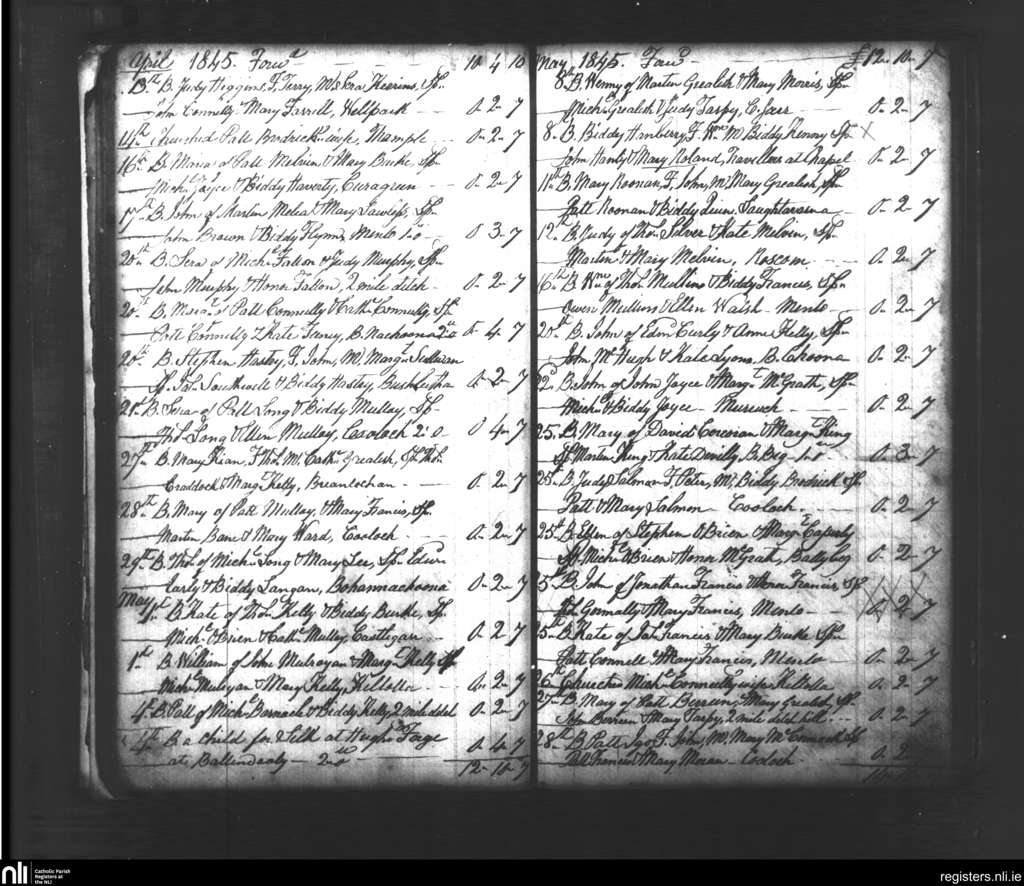 April 1845. Forwd 10 4 10
13th B. Judy Higgins, F. Terry, M. Sera Keerins, Sp.
John Connelly Mary Farrell, Wellpark 0. 2. 7
14th Churched Patt Brodrick wife, 0. 2. 7
16th B. Maria of Patt Melvin & Mary Burke, Sp.
Michl. Joyce & Biddy Haverty, Curagreen 0. 2. 7
17th B. John of Martin Melia & Mary Lawless, Sp.
John Brown & Biddy Flynn, Menlo 1.0 0 3. 7
20th B. Sera of Michl. Fallon & Judy Murphy, Sp.
John Murphy & Honor Fallon, 2 mile ditch 0. 2. 7
20th B. Maria of Patt Connelly & Cathn. Connelly, Sp.
Patt Connelly & Kate Faney, B. nachoona 0. 4. 7
20th B. Stephen Hasley, F. John, M. Margt. Sullivan
Sp. Jos. Southwell & Biddy Hasley, 0. 2. 7
21st B. Sera of Patt Long & Biddy Mullay, Sp.
Thos. Long & Ellen Mullay, Cooloch 2.0 0 4. 7
27th B. Mary Kian, F. Thos. M. Cathn. Grealish, Sp. Thos.
Craddock & Margt. Kelly, Breanlochan 0. 2. 7
28th B. Mary of Patt Mullay, & Mary Francis, Sp.
Martin Bane & Mary Ward, Cooloch 0. 2. 7
29th B. Thos. of Michl. Long & Mary Lee, Sp. Edwd.
Early & Biddy Langan, Bohannachoona 0. 2. 7
May 1st B. Kate of Thos. Kelly & Biddy Burke, Sp.
Michl. O Brien & Cathn. Mullay, Castlegar 0. 2 7
1st B. William of John Mulroyan & Margt. Kelly Sp.
Michl. Mulroyan & Mary Kelly, Killolla 0. 2. 7
4th B. Patt of Michl. Barnacle & Biddy Kelly, 2 mile ditch 0. 2. 7
4th B. a child for at Hugh
at Ballindooly 2.0 0. 4. 7
12. 10. 7
May 1845. Forwd £12. 10. 7
8th B. Henny of Martin Grealish & Mary Morris, Sp.
Michl. Grealish & Judy Tarpy, C. Garr 0. 2. 7
8. B. Biddy Hanberry, F. Wm. M. Biddy Kenny Sp. X
John Hanly & Mary Noland, Travellers at Chapel 0. 2. 7
11th B. Mary Noonan, F. John, M. Mary Grealish, Sp.
Patt Noonan & Biddy Quin, 0. 2. 7
12th B. Judy of Thos. Silver & Kate Melvin, Sp.
Martin & Mary Melvin, Roscom 0. 2. 7
16th B. Wm. of Thos. Mullins & Biddy Francis, Sp.
Owen Mullins & Ellen Walsh Menlo 0. 2. 7
20th B. John of Edmd. Curly & Anne Kelly, Sp.
John McHugh & Kate Lyons, B. Choona 0. 2. 7
22. B. John of John Joyce & Margt. McGrath, Sp.
Michl. & Biddy Joyce Murruch 0. 2. 7
25. B. Mary of David Corcoran & Margt. King
Sp. Martin King & Kate Devilly, B. Big 1.0 0. 3. 7
25th B. Judy Salmon F. Peter, M. Biddy Brodrick Sp.
Patt & Mary Salmon Cooloch 0. 2. 7
25th B. Ellen of Stephen O Brien & Margt.
Sp. Michl. O Brien & Honor McGrath, 0. 2. 7
25th B. John of Jonathan Francis & Honor Francis Sp. XXX
Connally & Mary Francis, Menlo 0. 2. 7
25th B. Kate of Jas. Francis & Mary Burke Sp.
Patt Connell & Mary Francis, Menlo 0. 2. 7
26th Churched Michl. Connelly wife Killolla 0. 2. 7
27th B. Mary of Patt Berreen, & Mary Grealish, Sp.
John Berreen & Mary Tarpy, 2 mile ditch hill 0. 2. 7
28th B. Patt Igo F. John, M. Mary McCormack Sp.
Patt Francis & Mary Moran Cooloch 0. 2
nli Catholic Parish
Registers at
the NLI
registers.nli.ie